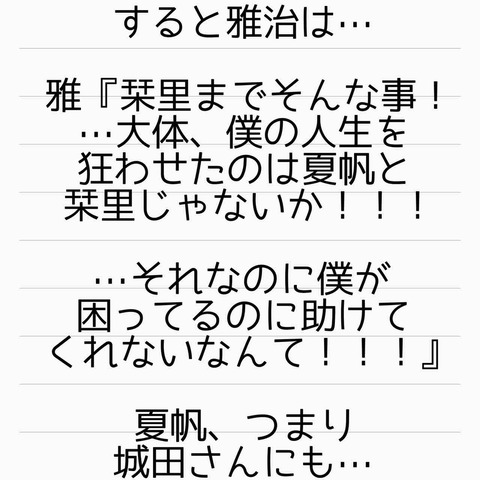 すると雅治は…
雅『栞里までそんな事！
…大体、僕の人生を
狂わせたのは夏帆と
栞里じゃないか！！！
…それなのに僕が
困ってるのに助けて
くれないなんて！！！』
夏帆、つまり
城田さんにも…